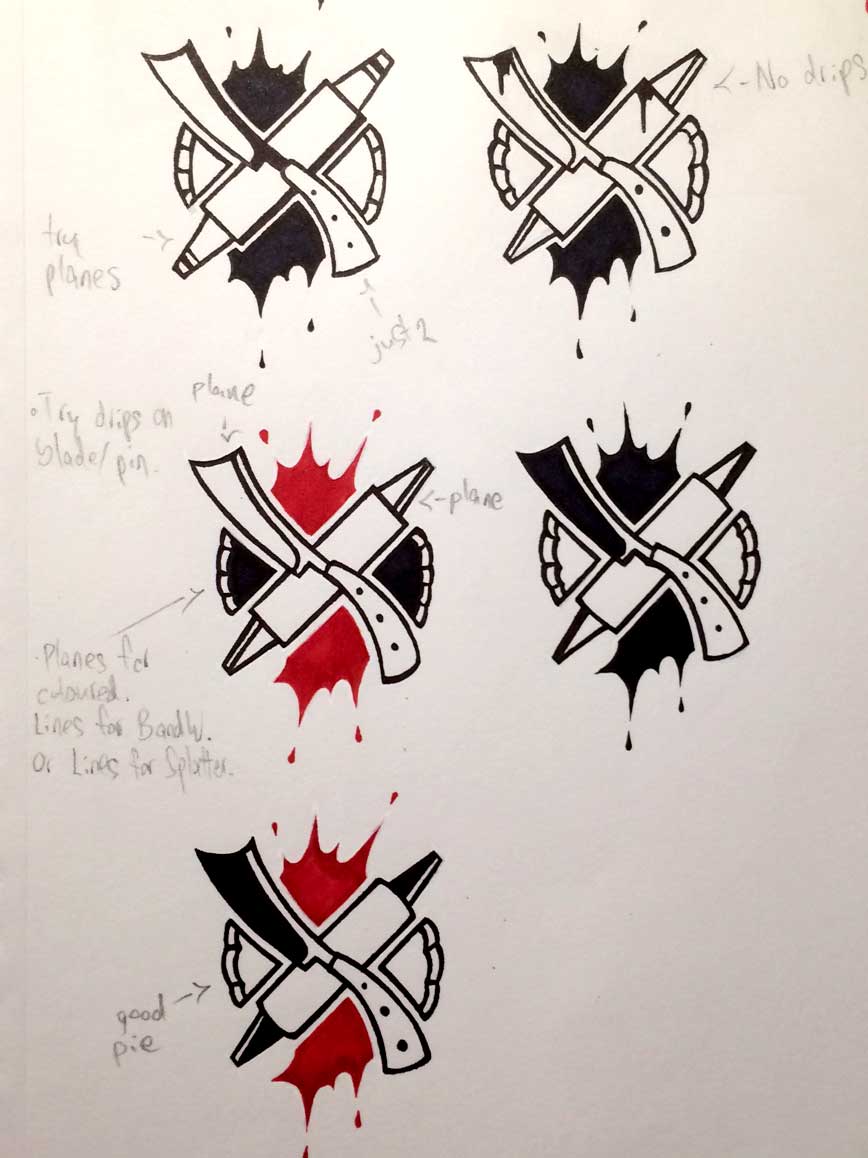 <- No drips
try
planes
just 2
plane
• Try drips on
blade/pin.
<- plane
. Planes for
coloured.
Lines for BandW.
Or Lines for Splatter.
good
pie